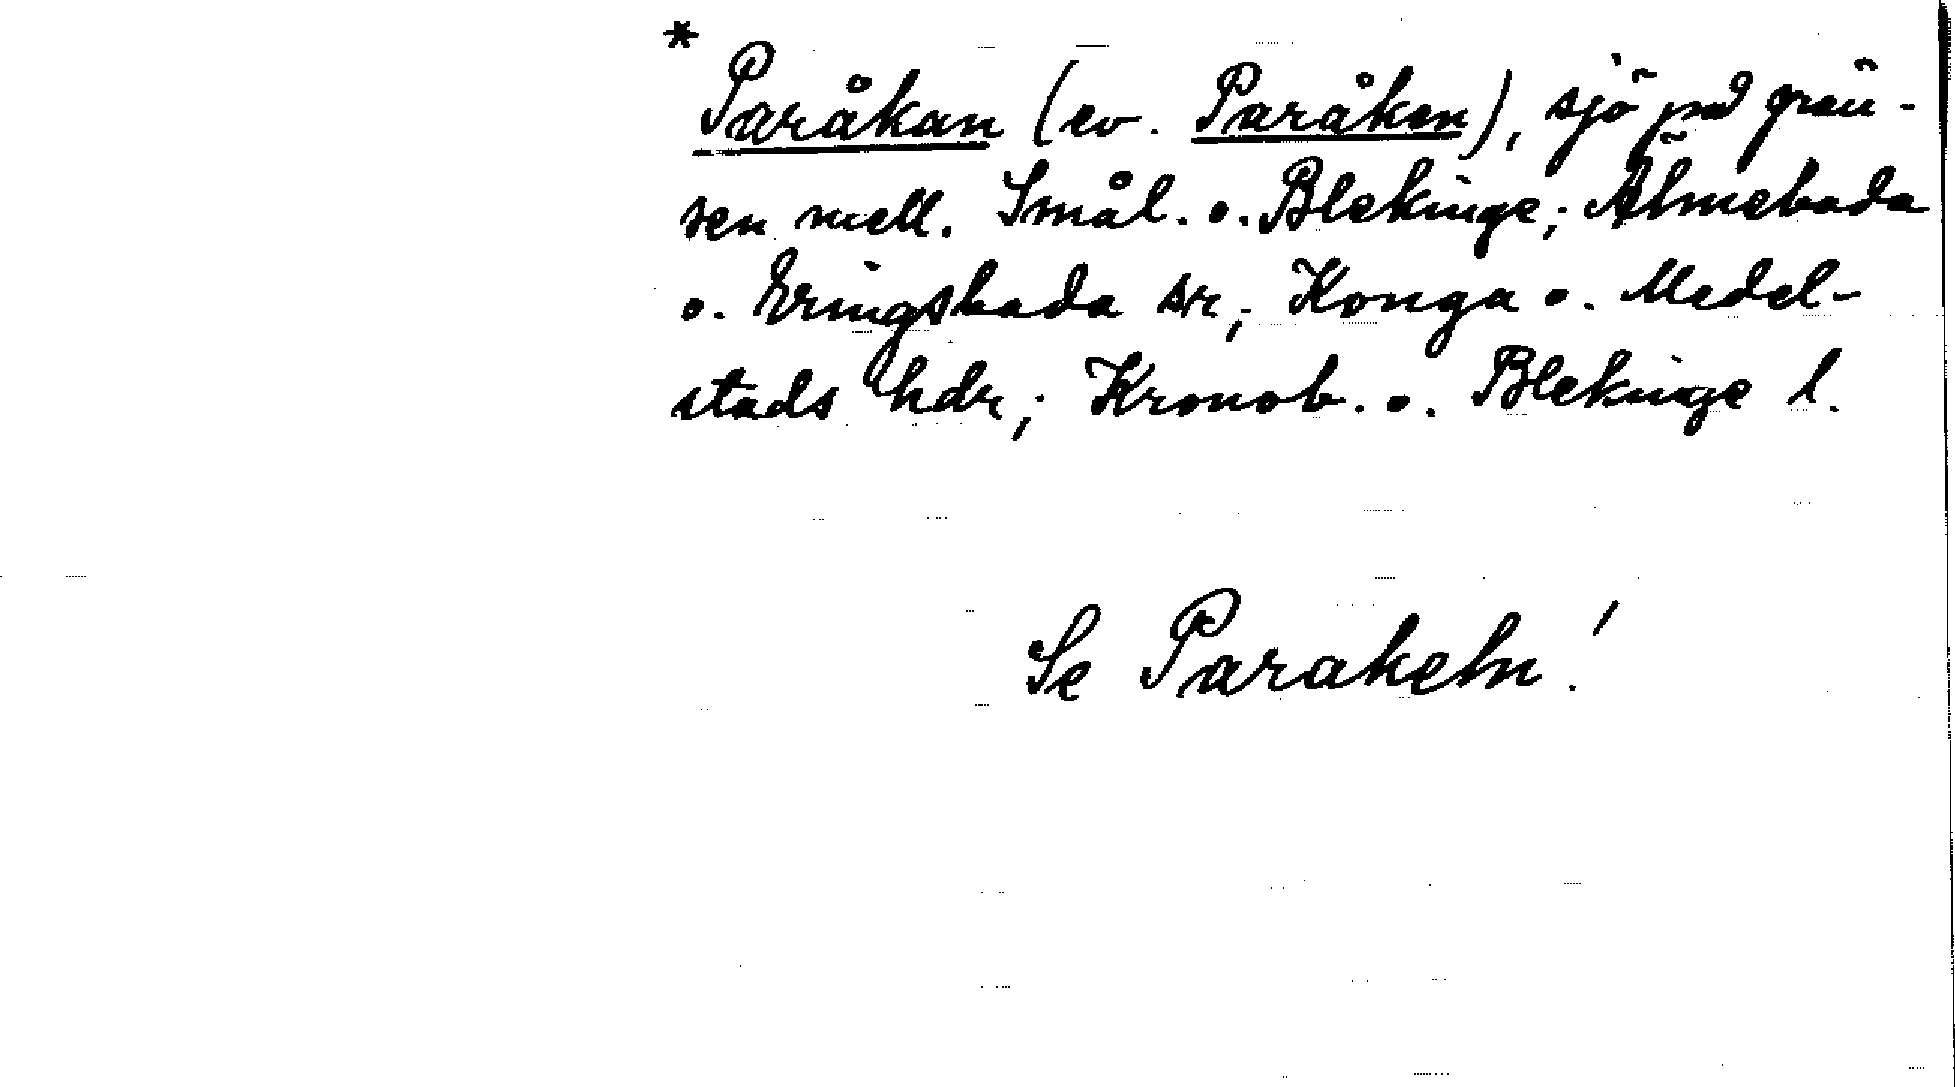 * Paråkan (ev. Paråken), sjö på grän-
sen mell. Smål. o. Blekinge; Älmeboda
o. Eringsboda snr; Konga o. Medel-
stads hdr; Kronob. o. Blekinge l.
Se Parakeln!